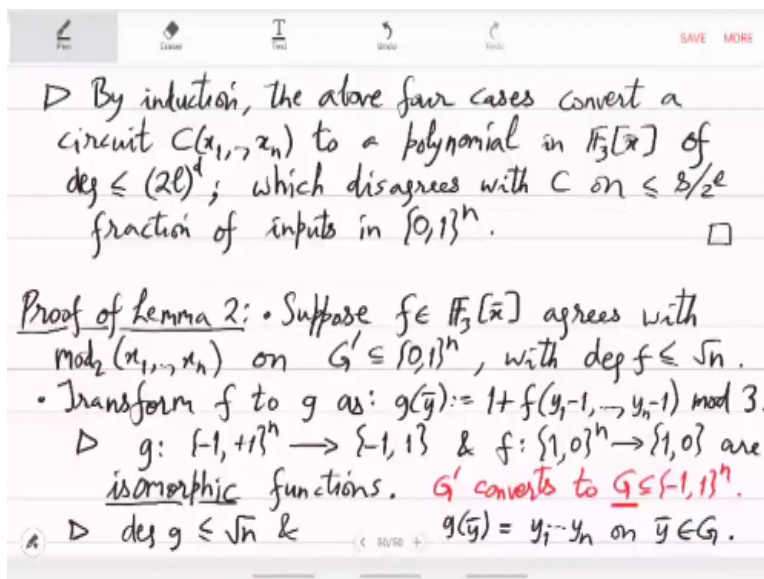 Pen Eraser Text Undo Redo SAVE MORE
▷ By induction, the above four cases convert a
circuit C(x₁,..,xₙ) to a polynomial in 𝔽₃[x̄] of
deg ≤ (2l)ᵈ; which disagrees with C on ≤ s/2ˡ
fraction of inputs in {0,1}ⁿ. □
Proof of Lemma 2: • Suppose f∈ 𝔽₃[x̄] agrees with
mod₂(x₁,..,xₙ) on G' ⊆ {0,1}ⁿ, with deg f ≤ √n.
• Transform f to g as: g(ȳ):= 1+f(y₁-1,..,yₙ-1) mod 3.
▷ g: {-1,+1}ⁿ → {-1,1} & f: {1,0}ⁿ→{1,0} are
isomorphic functions. G' converts to G⊆{-1,1}ⁿ.
▷ deg g ≤ √n & g(ȳ) = y₁…yₙ on ȳ∈G.
< 50/50 +